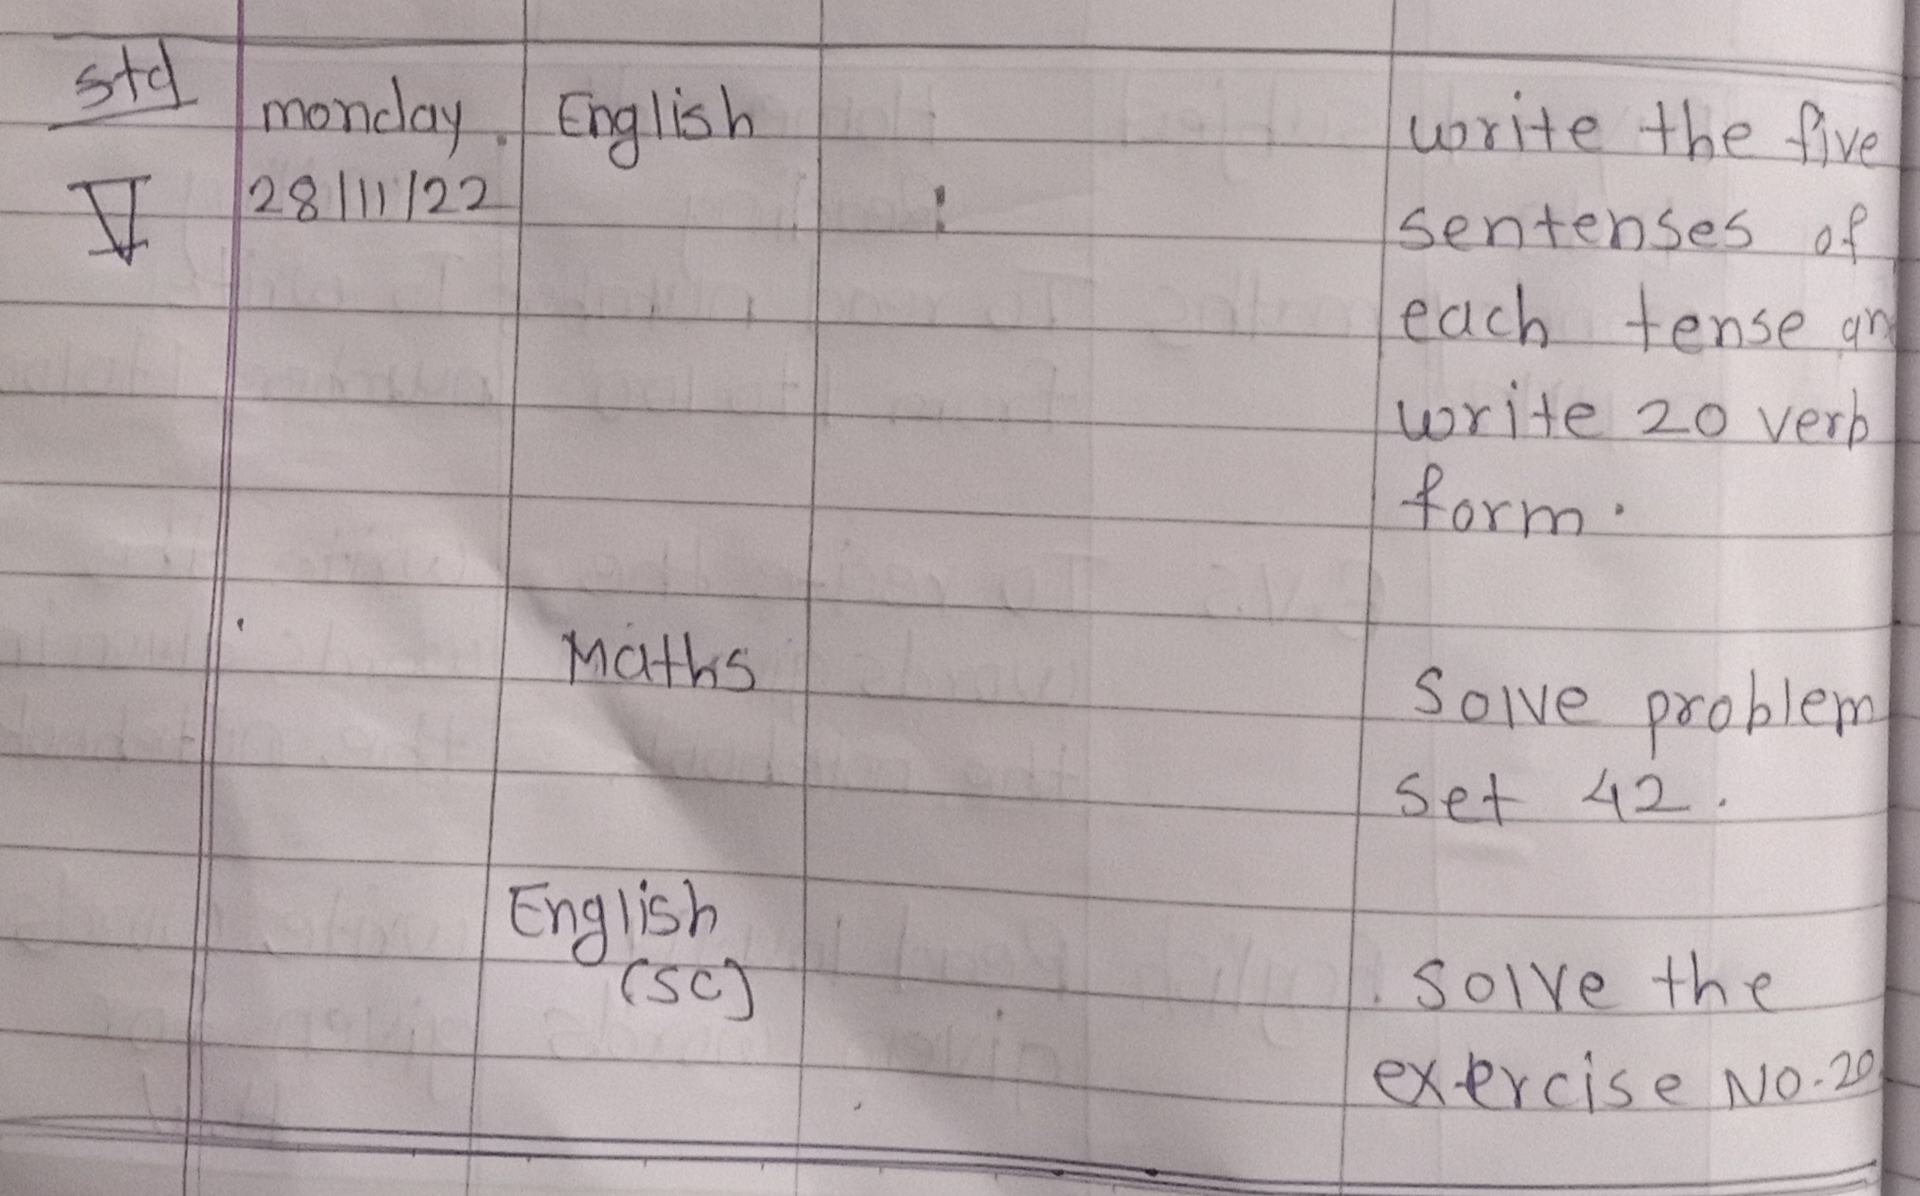 std monday. English write the five
V 28/11/22 sentenses of
each tense an
write 20 verb
form.
Maths solve problem
set 42.
English
(SC) solve the
exercise NO.20